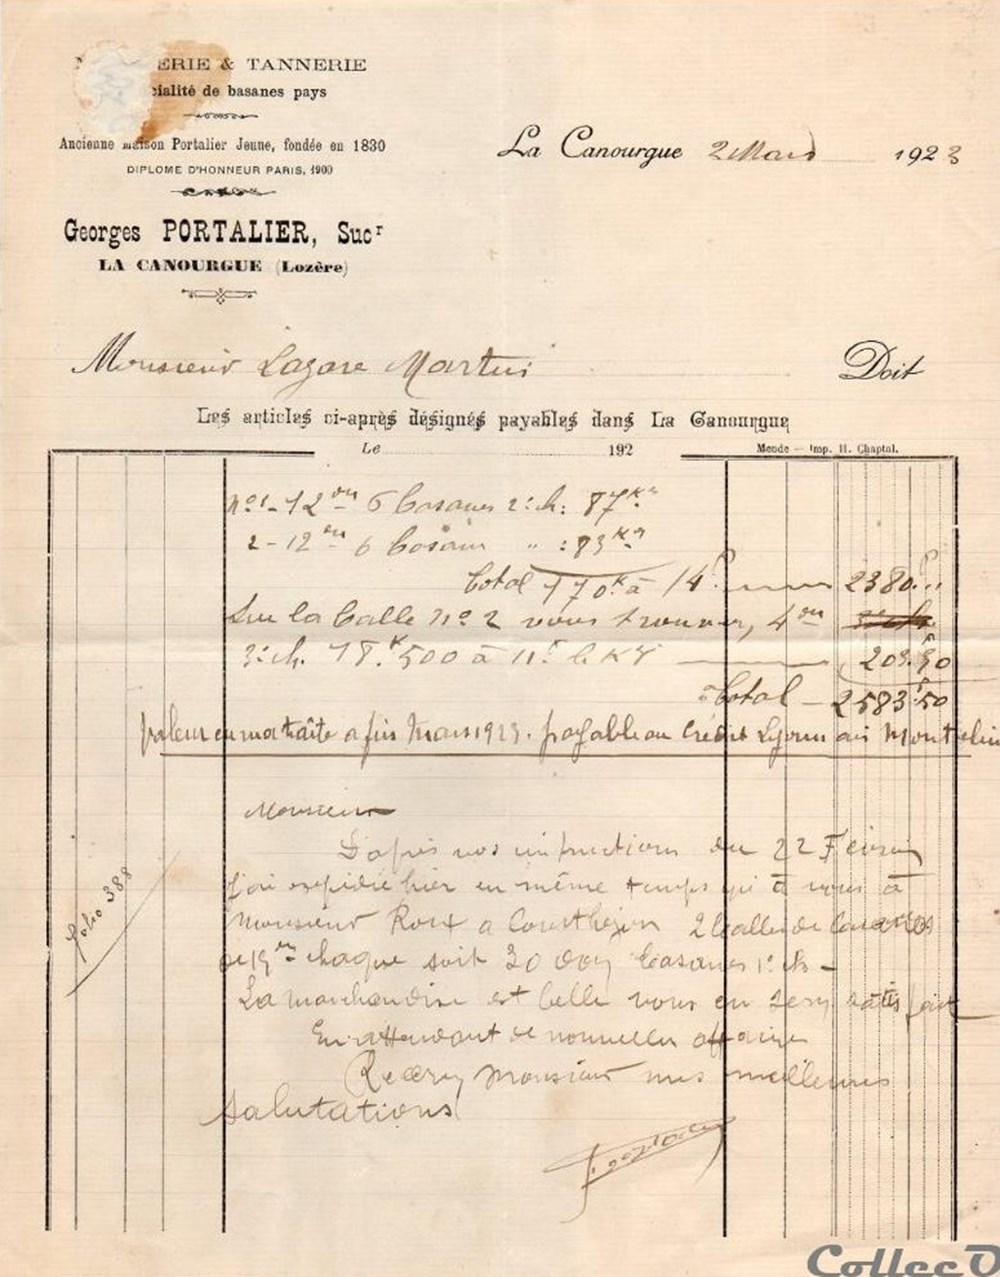 ERIE & TANNERIE
cialité de basanes pays
Ancienne maison Portalier Jeune, fondée en 1830
DIPLOME D'HONNEUR PARIS, 1900
Georges PORTALIER, Sucr
LA CANOURGUE (Lozère)
La Canourgue 2 Mars 1923
Monsieur Lazare Martin Doit
Les articles ci-après désignés payables dans La Canourgue
Le 192
Mende — Imp. H. Chaptal.
No 1 - 12 6 basanes 2e ch: 87 Ks
2 - 12 6 basanes " : 83 Ks
Total 170 K à 14 f 2380 f "
Sur la balle No 2 vous trouverez, 4
3e ch. 18 K 500 à 11 f le Kg 203 f 50
Total 2583 f 50
Valeur en ma traite a fin Mars 1923. payable au Crédit Lyonnais Montelim
Monsieur
D'après vos instructions du 22 Février
J'ai expédié hier en même temps qu'à vous à
Monsieur Roux a Courthézon 2 balles de basanes
de 15 chaque soit 30 douz basanes 1e ch -
La marchandise est belle vous en serez satisfait
En attendant de nouvelles affaires
Recevez Monsieur mes meilleures
Salutations
Folio 388
G. Portalier
CollecO